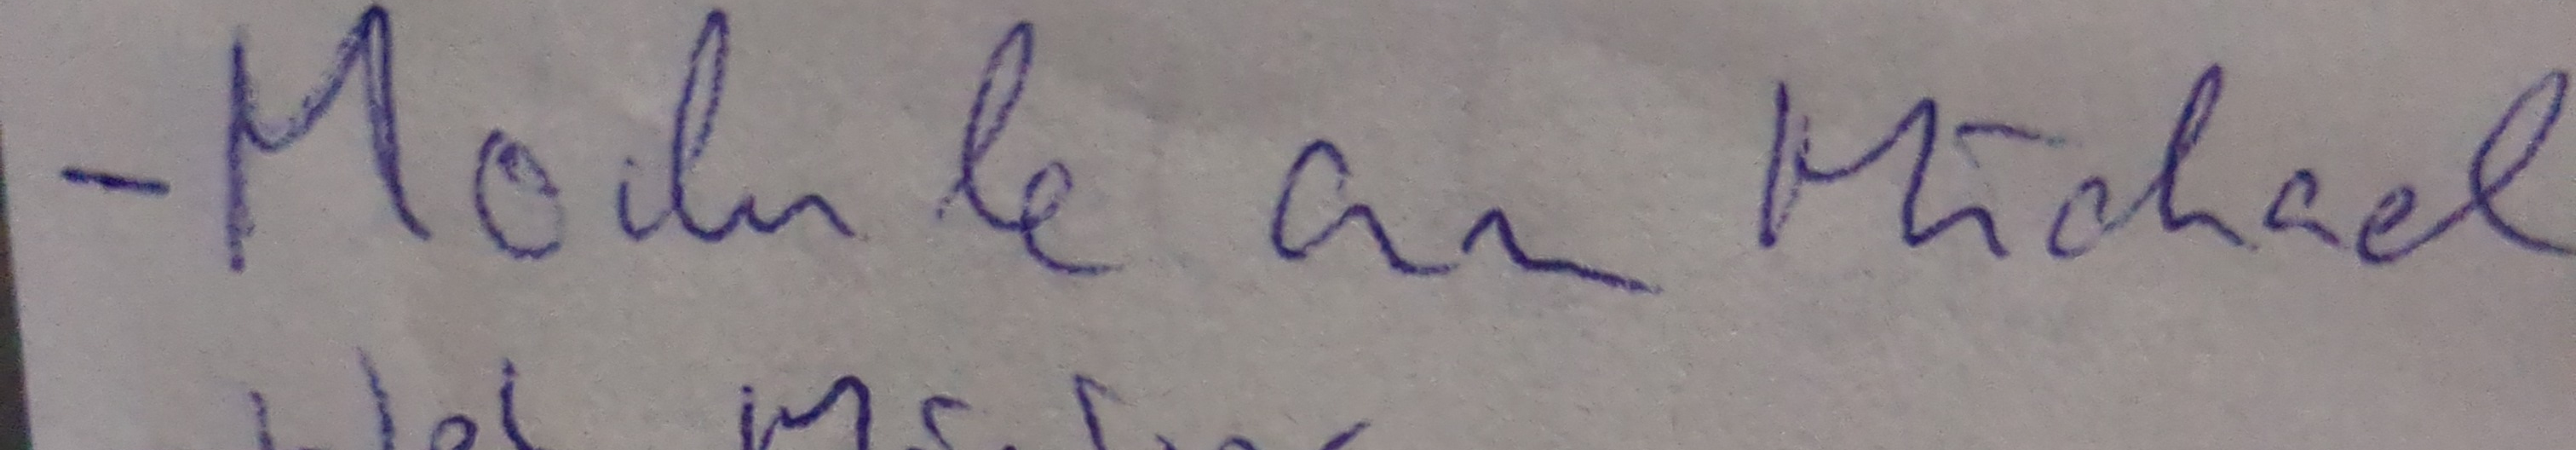 - Module an Michael